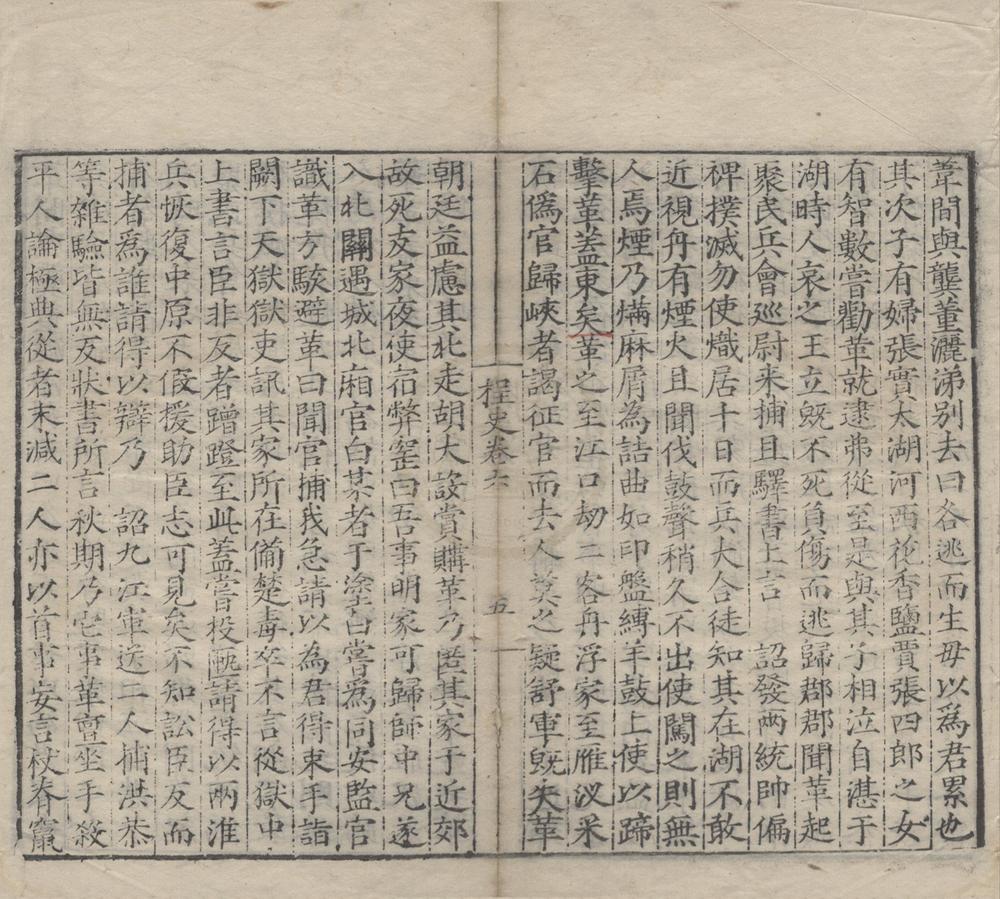 葦間與龔董灑涕别去曰各逃而生毋以爲君累也
其次子有婦張實太湖河西花香鹽賈張四郎之女
有智數嘗勸革就逮弗從至是與其子相泣自湛于
湖時人哀之王立旣不死負傷而逃歸郡郡聞革起
聚民兵會巡尉来捕且驛書上言　詔發兩統帥偏
裨撲滅勿使熾居十日而兵大合徒知其在湖不敢
近視舟有煙火且聞伐鼓聲稍久不出使闖之則無
人焉煙乃爇麻屑為詰曲如印盤縛羊鼓上使以蹄
擊革盖東矣革之至江口劫二客舟浮家至雁汊采
石僞官歸峽者謁征官而去人莫之疑舒軍旣失革
桯史卷六
五
朝廷益慮其北走胡大設賞購革乃匿其家于近郊
故死友家夜使宿弊窰曰吾事明家可歸師中兄遂
入北關遇城北廂官白某者于塗白嘗爲同安監官
識革方駭避革曰聞官捕我急請以為君得束手詣
闕下天獄獄吏訊其家所在備楚毒卒不言從獄中
上書言臣非反者蹭蹬至此盖嘗投匭請得以兩淮
兵恢復中原不假援助臣志可見矣不知訟臣反而
捕者爲誰請得以辯乃　詔九江軍送二人捕洪恭
等雜驗皆無反狀書所言秋期乃它事革亶坐手殺
平人論極典從者末減二人亦以首事妄言杖脊竄